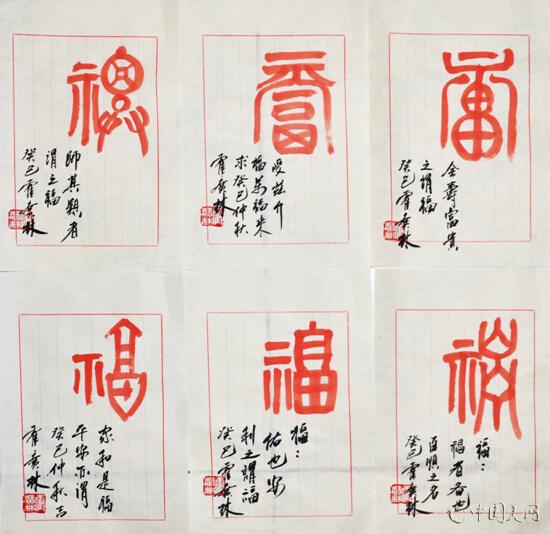 福
師其類者
謂之福
癸巳霍林
福
受兹介
福萬福来
求癸巳仲秋
霍林
福
全壽富貴
之謂福
癸巳霍林
福
家和是福
平安亦謂
癸巳仲秋吉
霍林
福
福：
佑也安
利之謂福
癸巳霍林
福
福：
福者备也
百順之名
癸巳霍林
中国美网